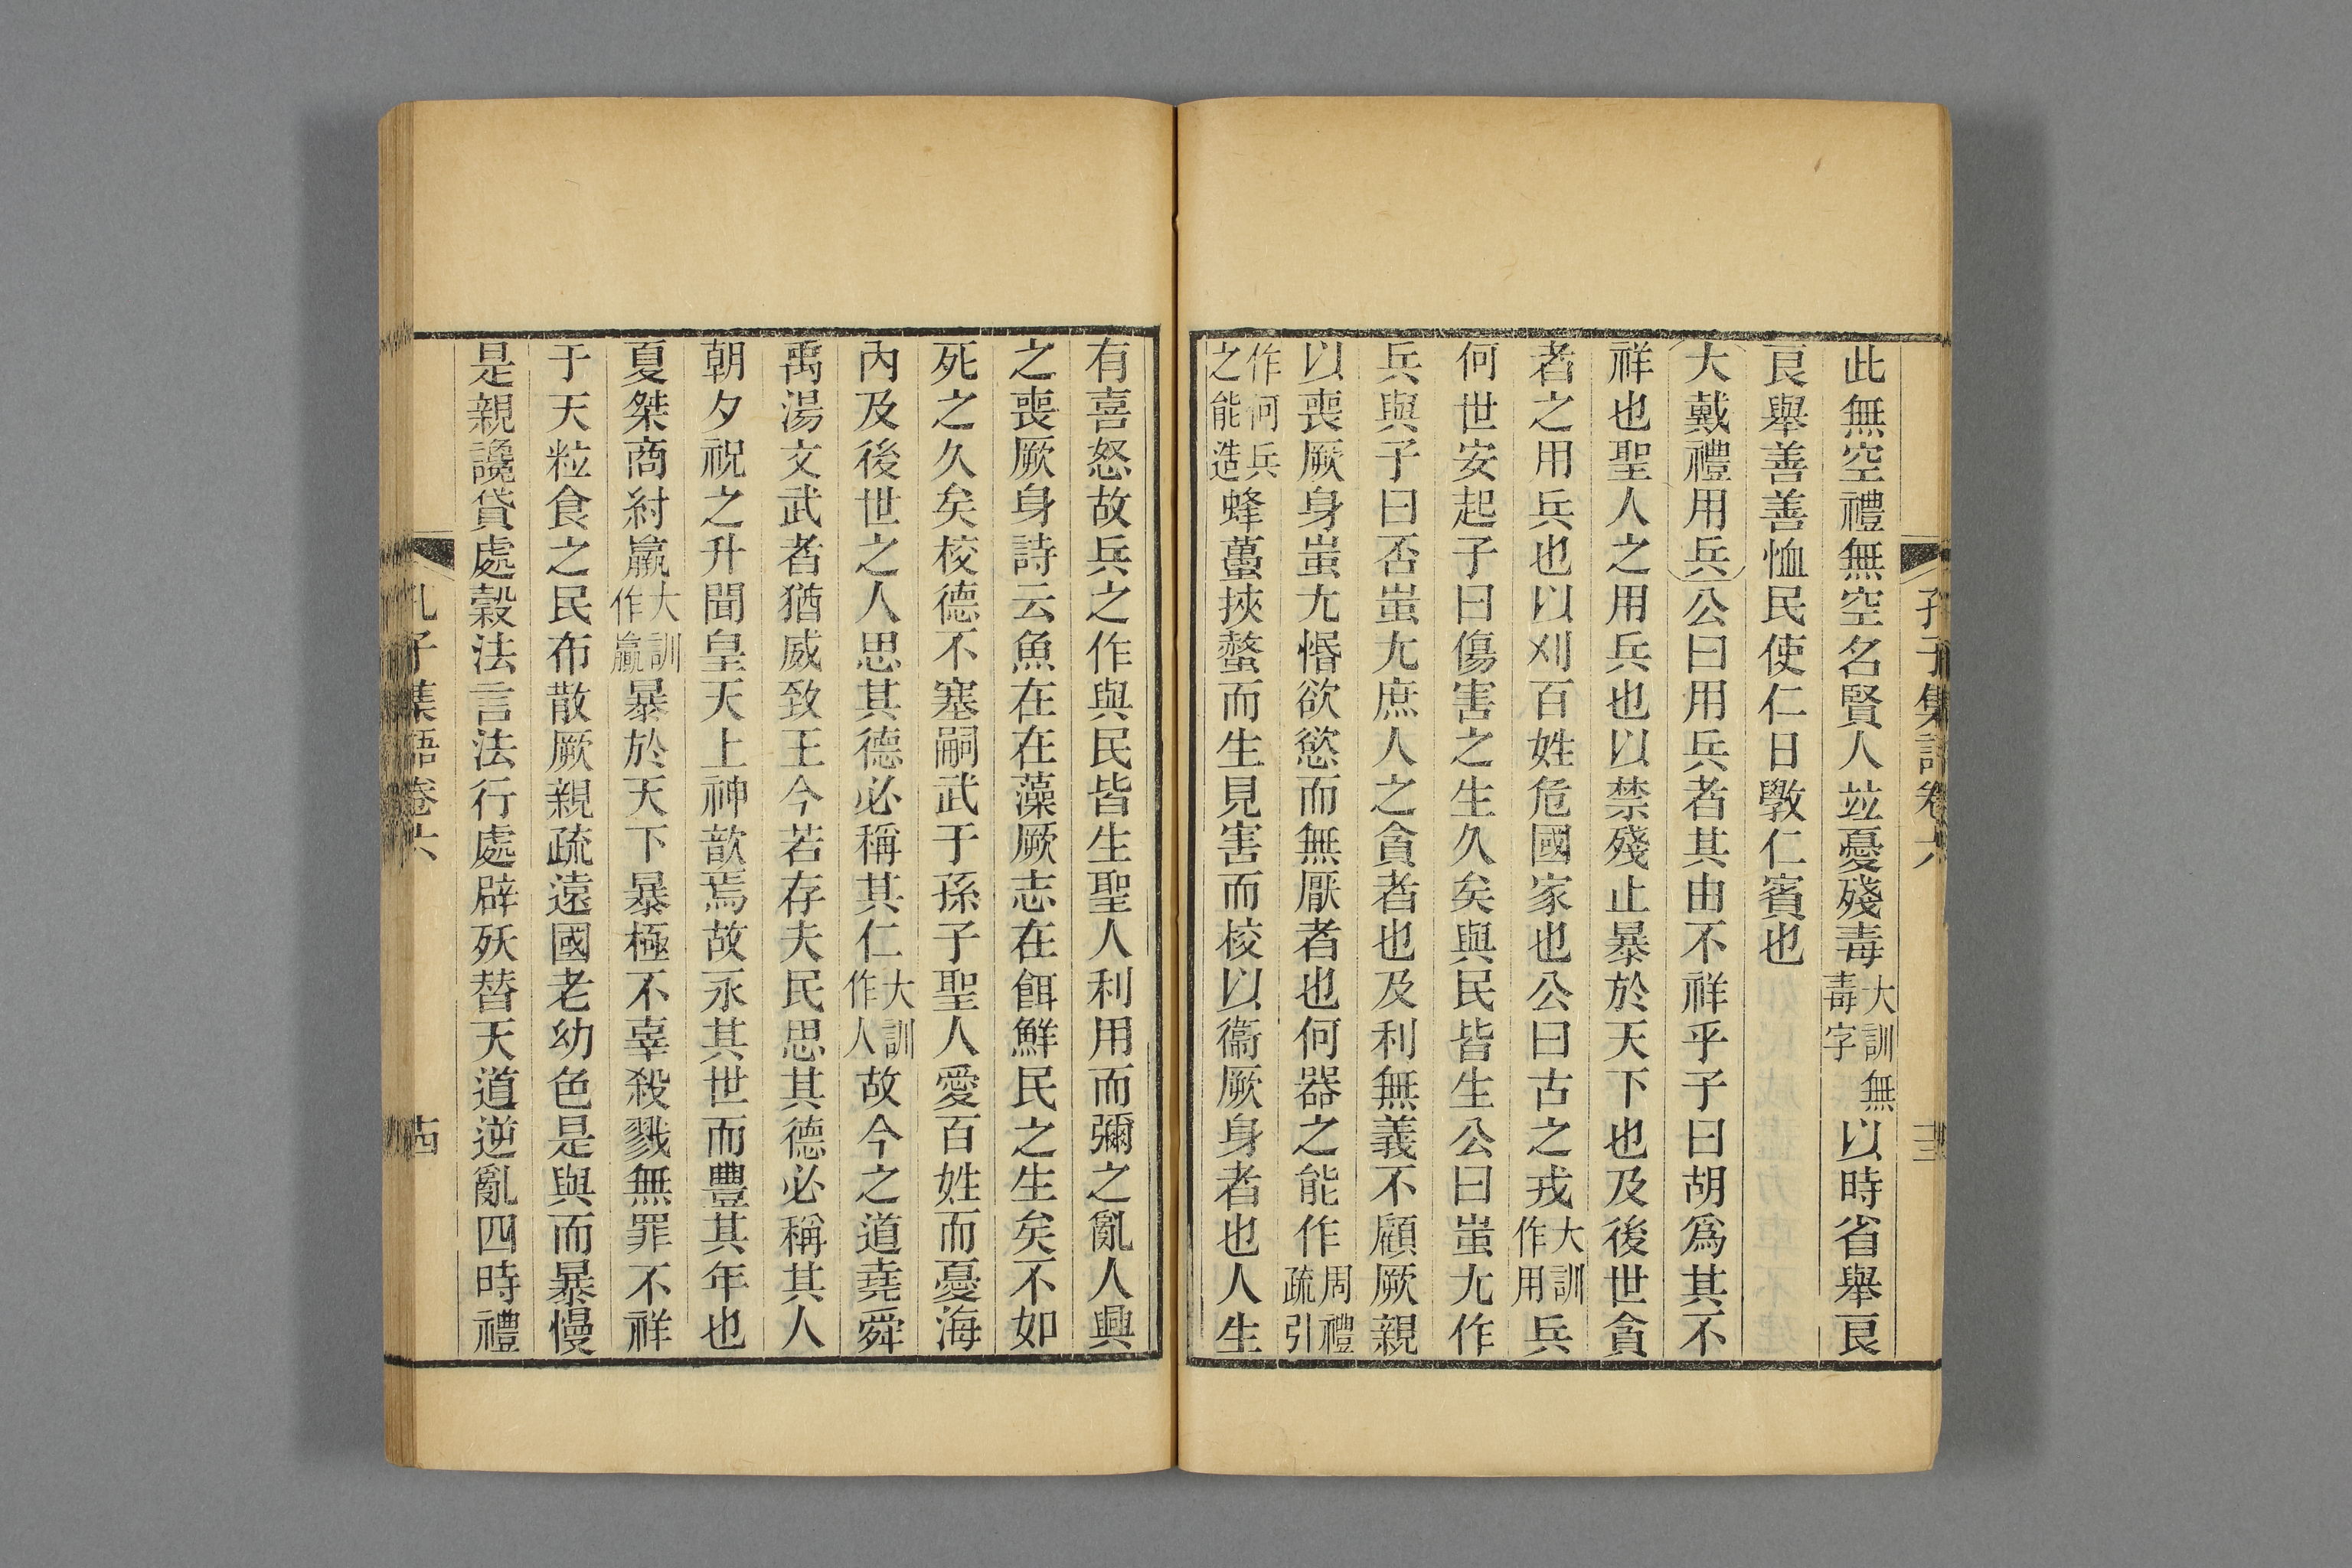 孔子集語卷六
十三
此無空禮無空名賢人竝憂殘毒大訓無毒字以時省舉良
良舉善善恤民使仁日斆仁賓也
大戴禮用兵公曰用兵者其由不祥乎子曰胡爲其不
祥也聖人之用兵也以禁殘止暴於天下也及後世貪
者之用兵也以刈百姓危國家也公曰古之戎大訓作用兵
何世安起子曰傷害之生久矣與民皆生公曰蚩尤作
兵與子曰否蚩尤庶人之貪者也及利無義不顧厥親
以喪厥身蚩尤惽欲慾而無厭者也何器之能作周禮疏引
作何兵之能造蜂蠆挾螫而生見害而校以衞厥身者也人生
有喜怒故兵之作與民皆生聖人利用而彌之亂人興
之喪厥身詩云魚在在藻厥志在餌鮮民之生矣不如
死之久矣校德不塞嗣武于孫子聖人愛百姓而憂海
內及後世之人思其德必稱其仁大訓作人故今之道堯舜
禹湯文武者猶威致王今若存夫民思其德必稱其人
朝夕祝之升聞皇天上神歆焉故永其世而豐其年也
夏桀商紂羸大訓作贏暴於天下暴極不辜殺戮無罪不祥
于天粒食之民布散厥親疏遠國老幼色是與而暴慢
是親讒貸處穀法言法行處辟殀替天道逆亂四時禮
孔子集語卷六
十四